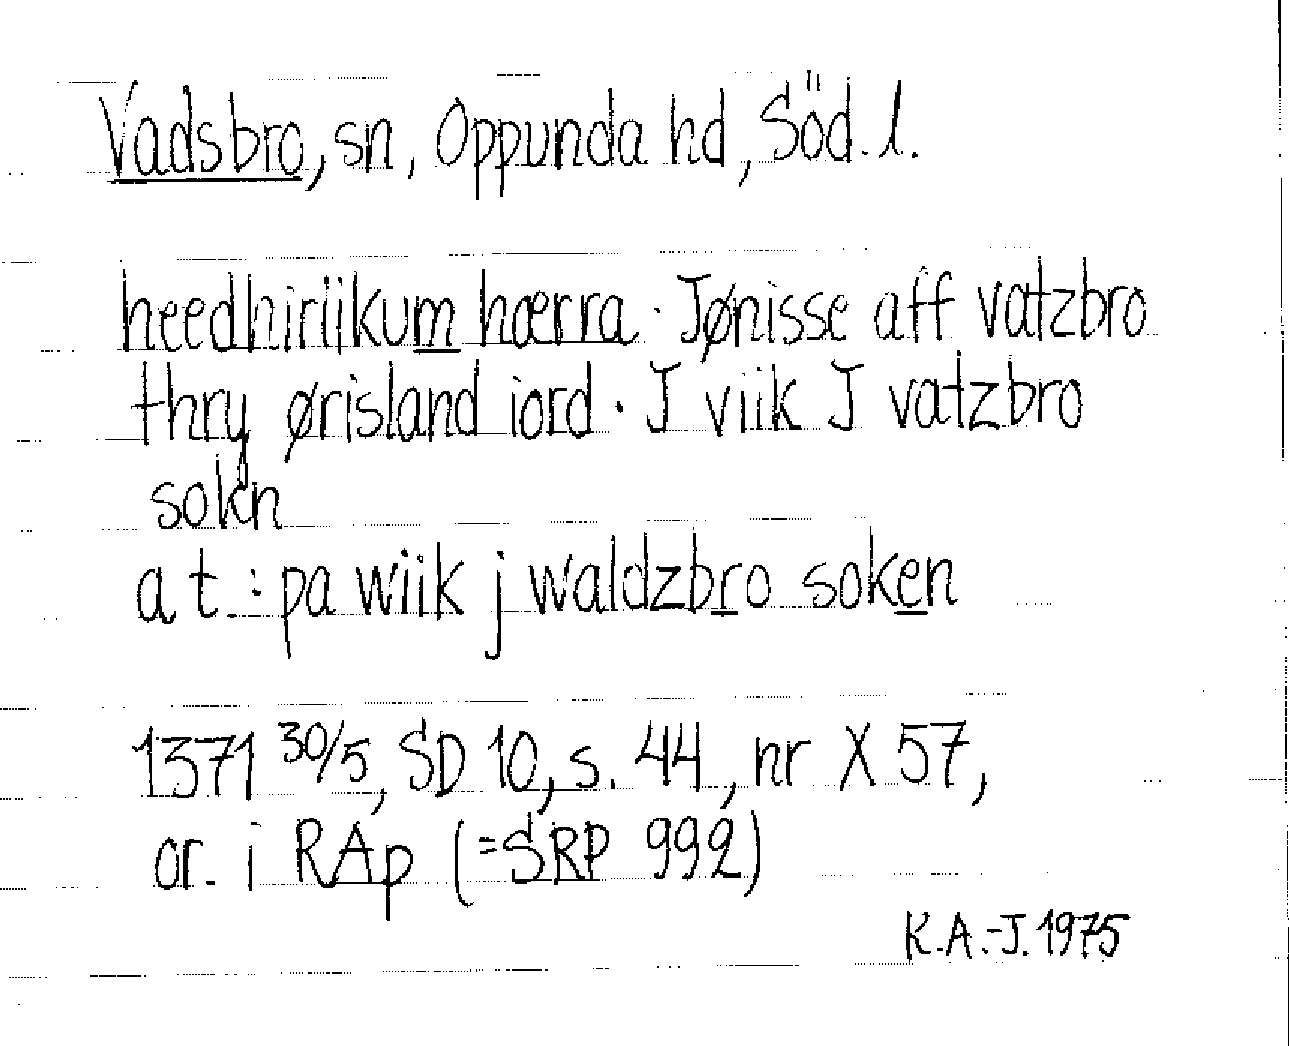 Vadsbro, sn, Oppunda hd, Söd. l.
heedhiriikum hærra · Jønisse aff vatzbro
thry ørisland iord · J viik J vatzbro
sokn
a t. : pa wiik j waldzbro soken
1371 30/5, SD 10, s. 44, nr X 57,
or. i RAp (=SRP 992)
K.A.-J. 1975